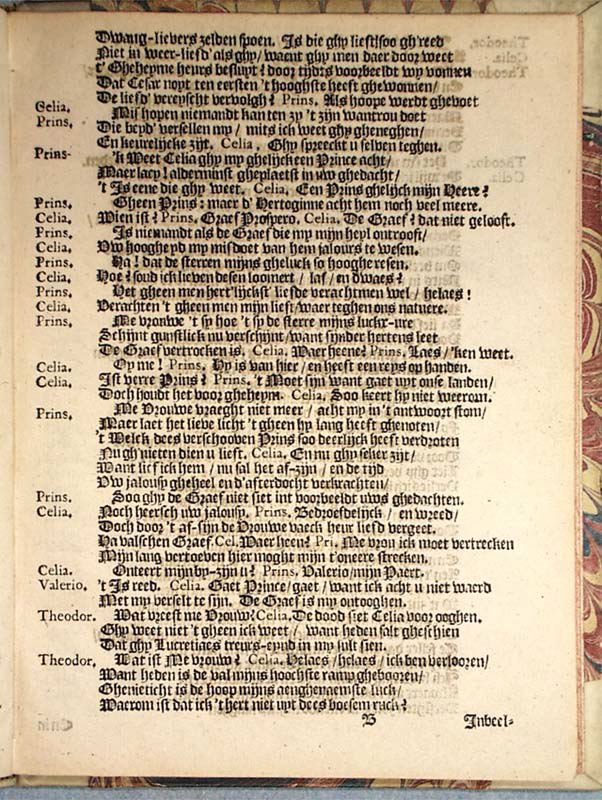 Dwang-lievers zelden spoen. Is die ghy lieft soo gh'reed
Niet in weer-liefd' als ghy / waent ghy men daer door weet
t' Gheheyme heurs besluyt? door tijdts voorbeeldt wy vonnen
Dat Cesar noyt ten eersten 't hooghste heeft ghewonnen /
Celia. De liefd' vereyscht vervolgh? Prins. Als hoope werdt ghevoet
Prins. Mis hopen niemandt kan ten zy 't zijn wantrou doet
Die beyd' versellen my / mits ick weet ghy gheneghen /
En keurelijcke zijt. Celia, Ghy spreeckt u selven teghen.
Prins- 'k Weet Celia ghy my ghelijck een Prince acht /
Maer lacy! alderminst gheplaetst in uw ghedacht /
't Is eene die ghy weet. Celia. Een Prins ghelijck mijn Heere?
Prins. Gheen Prins: maer d' Hertoginne acht hem noch veel meere.
Celia. Wien ist? Prins. Graef Prospero. Celia. De Graef? dat niet gelooft.
Prins. Is niemandt als de Graef die my mijn heyl ontrooft /
Celia. Uw hoogheyd my misdoet van hem jalours te wesen.
Prins. Ha! dat de sterren mijns gheluck so hooghe resen.
Celia. Hoe? soud ick lieven desen loomert / laf / en dwaes?
Prins. Het gheen men hert'lijckst liefde veracht men wel / helaes!
Celia. Verachten 't gheen men mijn lieft / waer teghen ons natuere.
Prins. Me vrouwe 't sy hoe 't sy de sterre mijns luckx-ure
Schijnt gunstlick nu verschijnt / want sijnder hertens leet
De Graef vertrocken is. Celia. Waer heene? Prins. Laes / 'ken weet.
Celia. Oy me! Prins. Hy is van hier / en heeft een reys op handen.
Celia. Ist verre Prins? Prins. 't Moet sijn want gaet uyt onse landen /
Doch houdt het voor gheheym. Celia. Soo keert hy niet weerom.
Prins. Me Vrouwe vraeght niet meer / acht my in 't antwoort stom /
Maer laet het lieve licht 't gheen hy lang heeft ghenoten /
't Welck dees verschooven Prins soo deerlijck heeft verdroten
Nu gh'nieten dien u liest. Celia. En nu ghy seker zijt /
Want lief ick hem / nu sal het af-zijn / en de tijd
Uw jalousy gheheel en d'afterdocht verkrachten /
Prins. Soo ghy de Graef niet siet int voorbeeldt uws ghedachten.
Celia. Noch heersch uw jalousy. Prins. Bedroefdelijck / en wreed /
Doch door 't af-sijn de Vrouwe vaeck heur lief vergeet.
Ha valschen Graef. Cel. Waer heen? Pri. Me vrou ick moet vertrecken
Mijn lang vertoeven hier moght mijn t'oneere strecken.
Celia. Onteert mijn by-zijn u? Prins. Valerio / mijn Paert.
Valerio. 't Is reed. Celia. Gaet Prince / gaet / want ick acht u niet waerd
Met my verselt te sijn. De Graef is my ontooghen.
Theodor. Wat vreest me Vrouw? Celia. De dood siet Celia voor ooghen.
Ghy weet niet 't gheen ick weet / want heden salt gheschien
Dat ghy Lucretiaes treurs-eynd in my sult sien.
Theodor. Wat ist Me vrouw? Celia. Helaes / helaes / ick ben verlooren /
Want heden is de val mijns hoochste ramp ghebooren /
Ghenieticht is de hoop mijns aenghenaemste luck /
Waerom ist dat ick 't hert niet uyt dees boesem ruck?
B Inbeel-